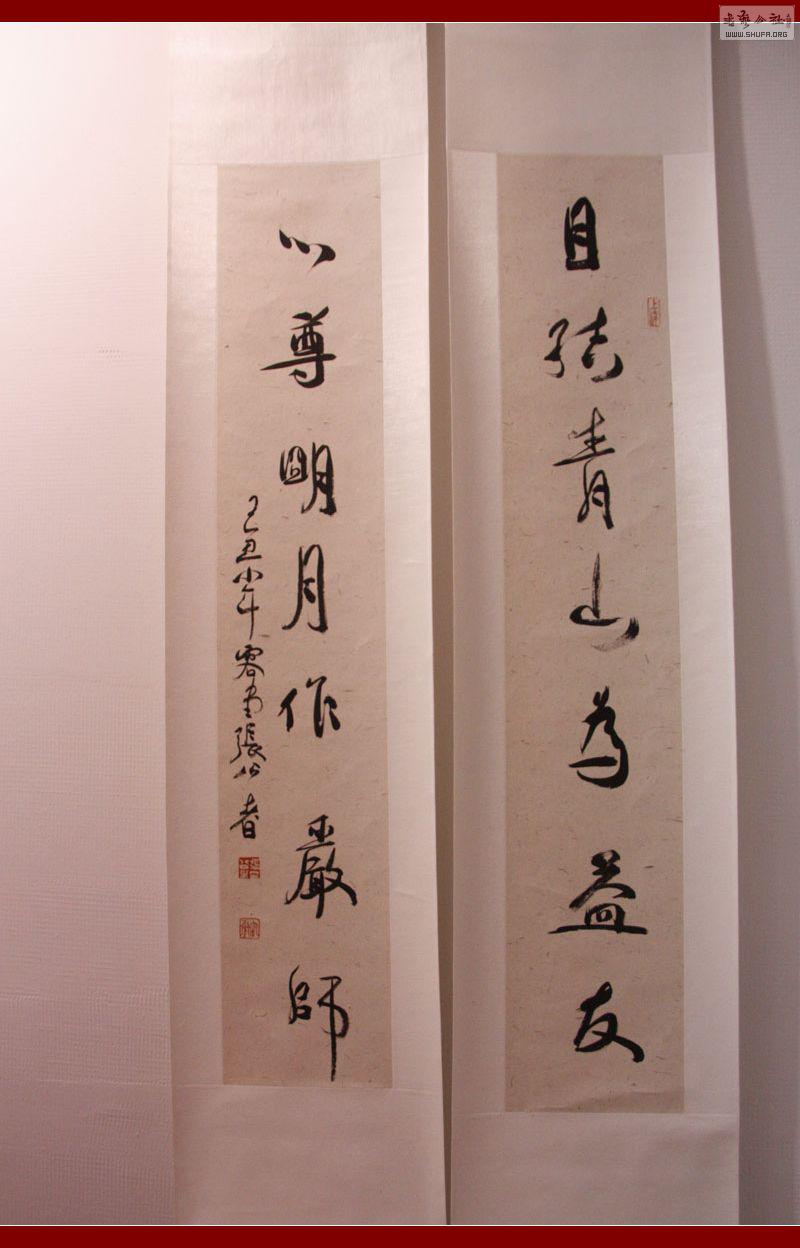 目結青山為益友
心尊明月作嚴師
己丑小年容堂張公者
書藝公社
WWW.SHUFA.ORG